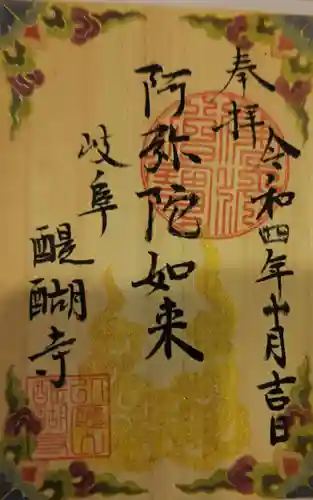 奉拝
令和四年十月吉日
阿弥陀如来
岐阜
醍醐寺